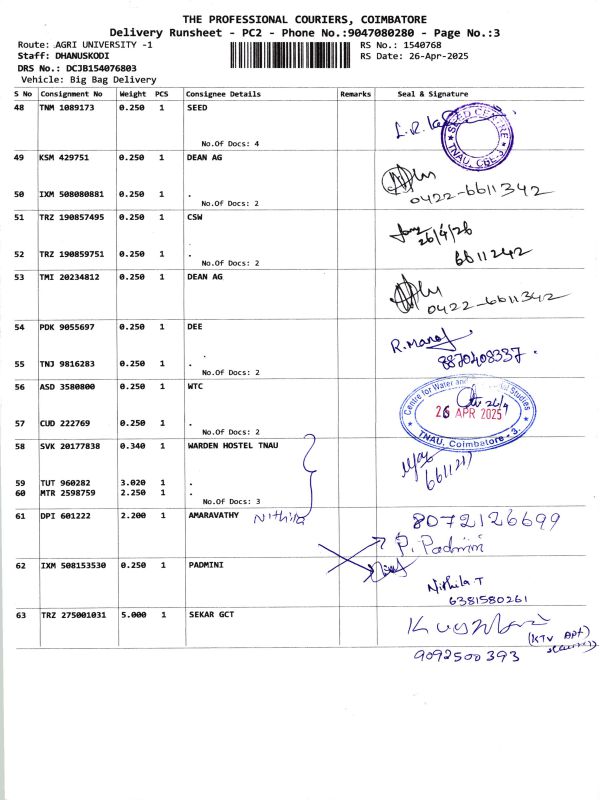 THE PROFESSIONAL COURIERS, COIMBATORE
Delivery Runsheet - PC2 - Phone No.:9047080280 - Page No.:3
Route: AGRI UNIVERSITY -1 RS No.: 1540768
Staff: DHANUSKODI RS Date: 26-Apr-2025
DRS No.: DCJB154076803
Vehicle: Big Bag Delivery
S No Consignment No Weight PCS Consignee Details Remarks Seal & Signature
48 TNM 1089173 0.250 1 SEED
SEED CENTRE
TNAU, CBE-3
No.Of Docs: 4
49 KSM 429751 0.250 1 DEAN AG
50 IXM 508080881 0.250 1 . 0422-6611342
No.Of Docs: 2
51 TRZ 190857495 0.250 1 CSW
26/4/26
52 TRZ 190859751 0.250 1 . 6611242
No.Of Docs: 2
53 TMI 20234812 0.250 1 DEAN AG
0422-6611342
54 PDK 9055697 0.250 1 DEE
R. Manoj
55 TNJ 9816283 0.250 1 . 8870408337.
No.Of Docs: 2
56 ASD 3580800 0.250 1 WTC
Centre for Water and Studies
26/4
26 APR 2025
TNAU, Coimbatore - 3.
57 CUD 222769 0.250 1 .
No.Of Docs: 2
58 SVK 20177838 0.340 1 WARDEN HOSTEL TNAU
6611217
59 TUT 960282 3.020 1 .
60 MTR 2598759 2.250 1 .
No.Of Docs: 3
61 DPI 601222 2.200 1 AMARAVATHY Nithila 8072126699
P. Padmini
62 IXM 508153530 0.250 1 PADMINI
Nithila T
6381580261
63 TRZ 275001031 5.000 1 SEKAR GCT
(KTV APT)
9092500393